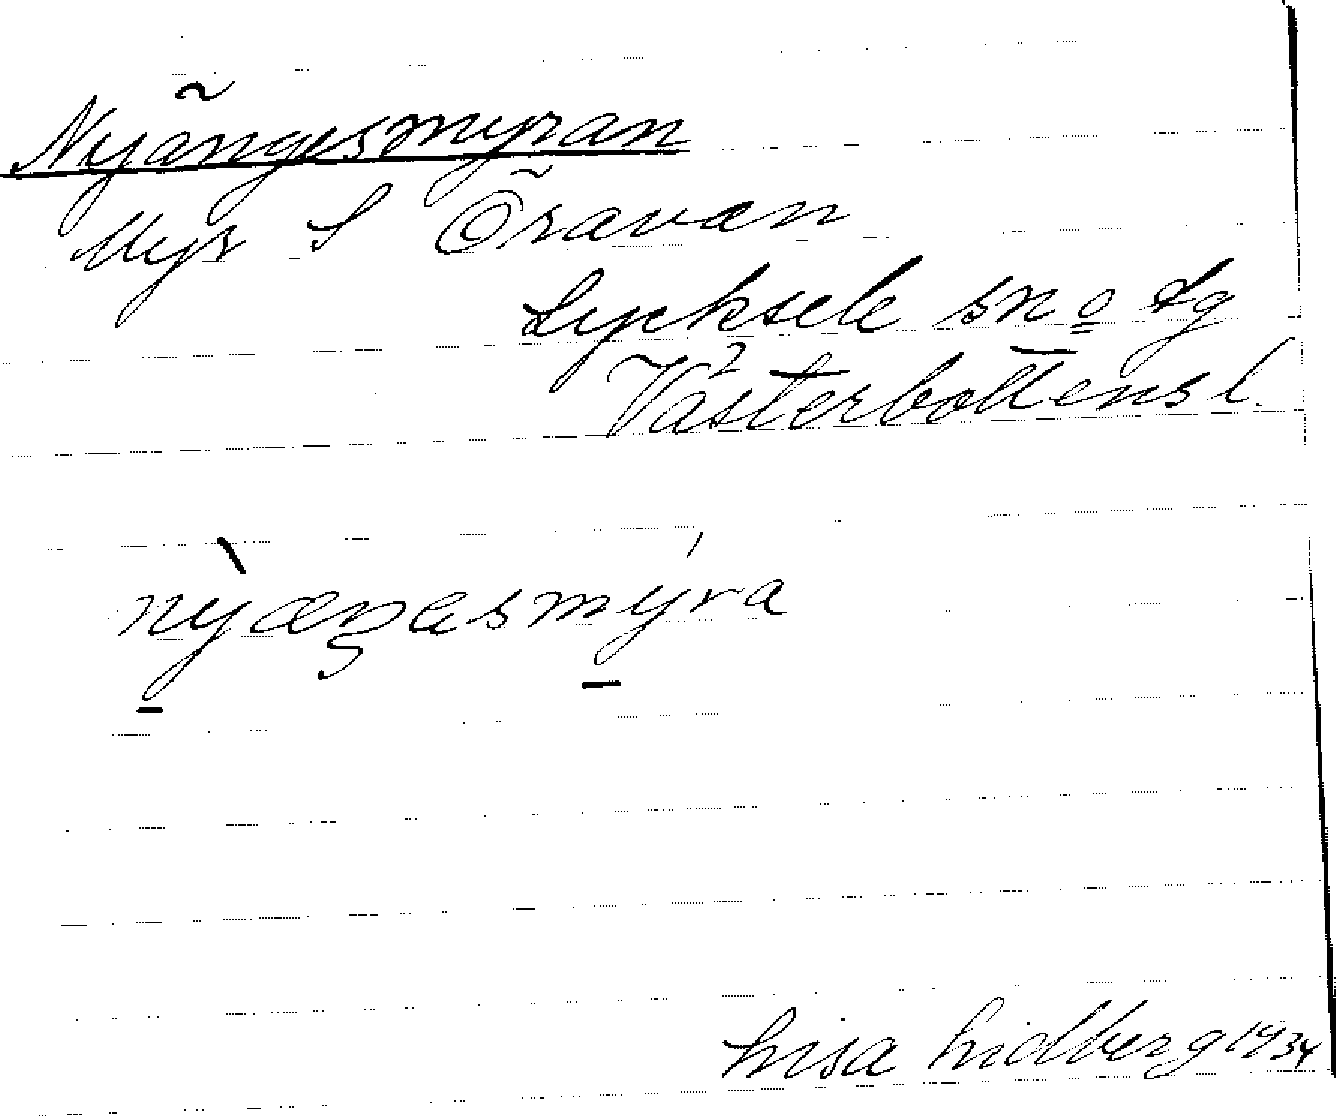 Nyängesmyran
Myr S Öravan
Lycksele sn o lg
Västerbottens l.
nỳæŋɐsmýra
Lisa Lidberg 1934